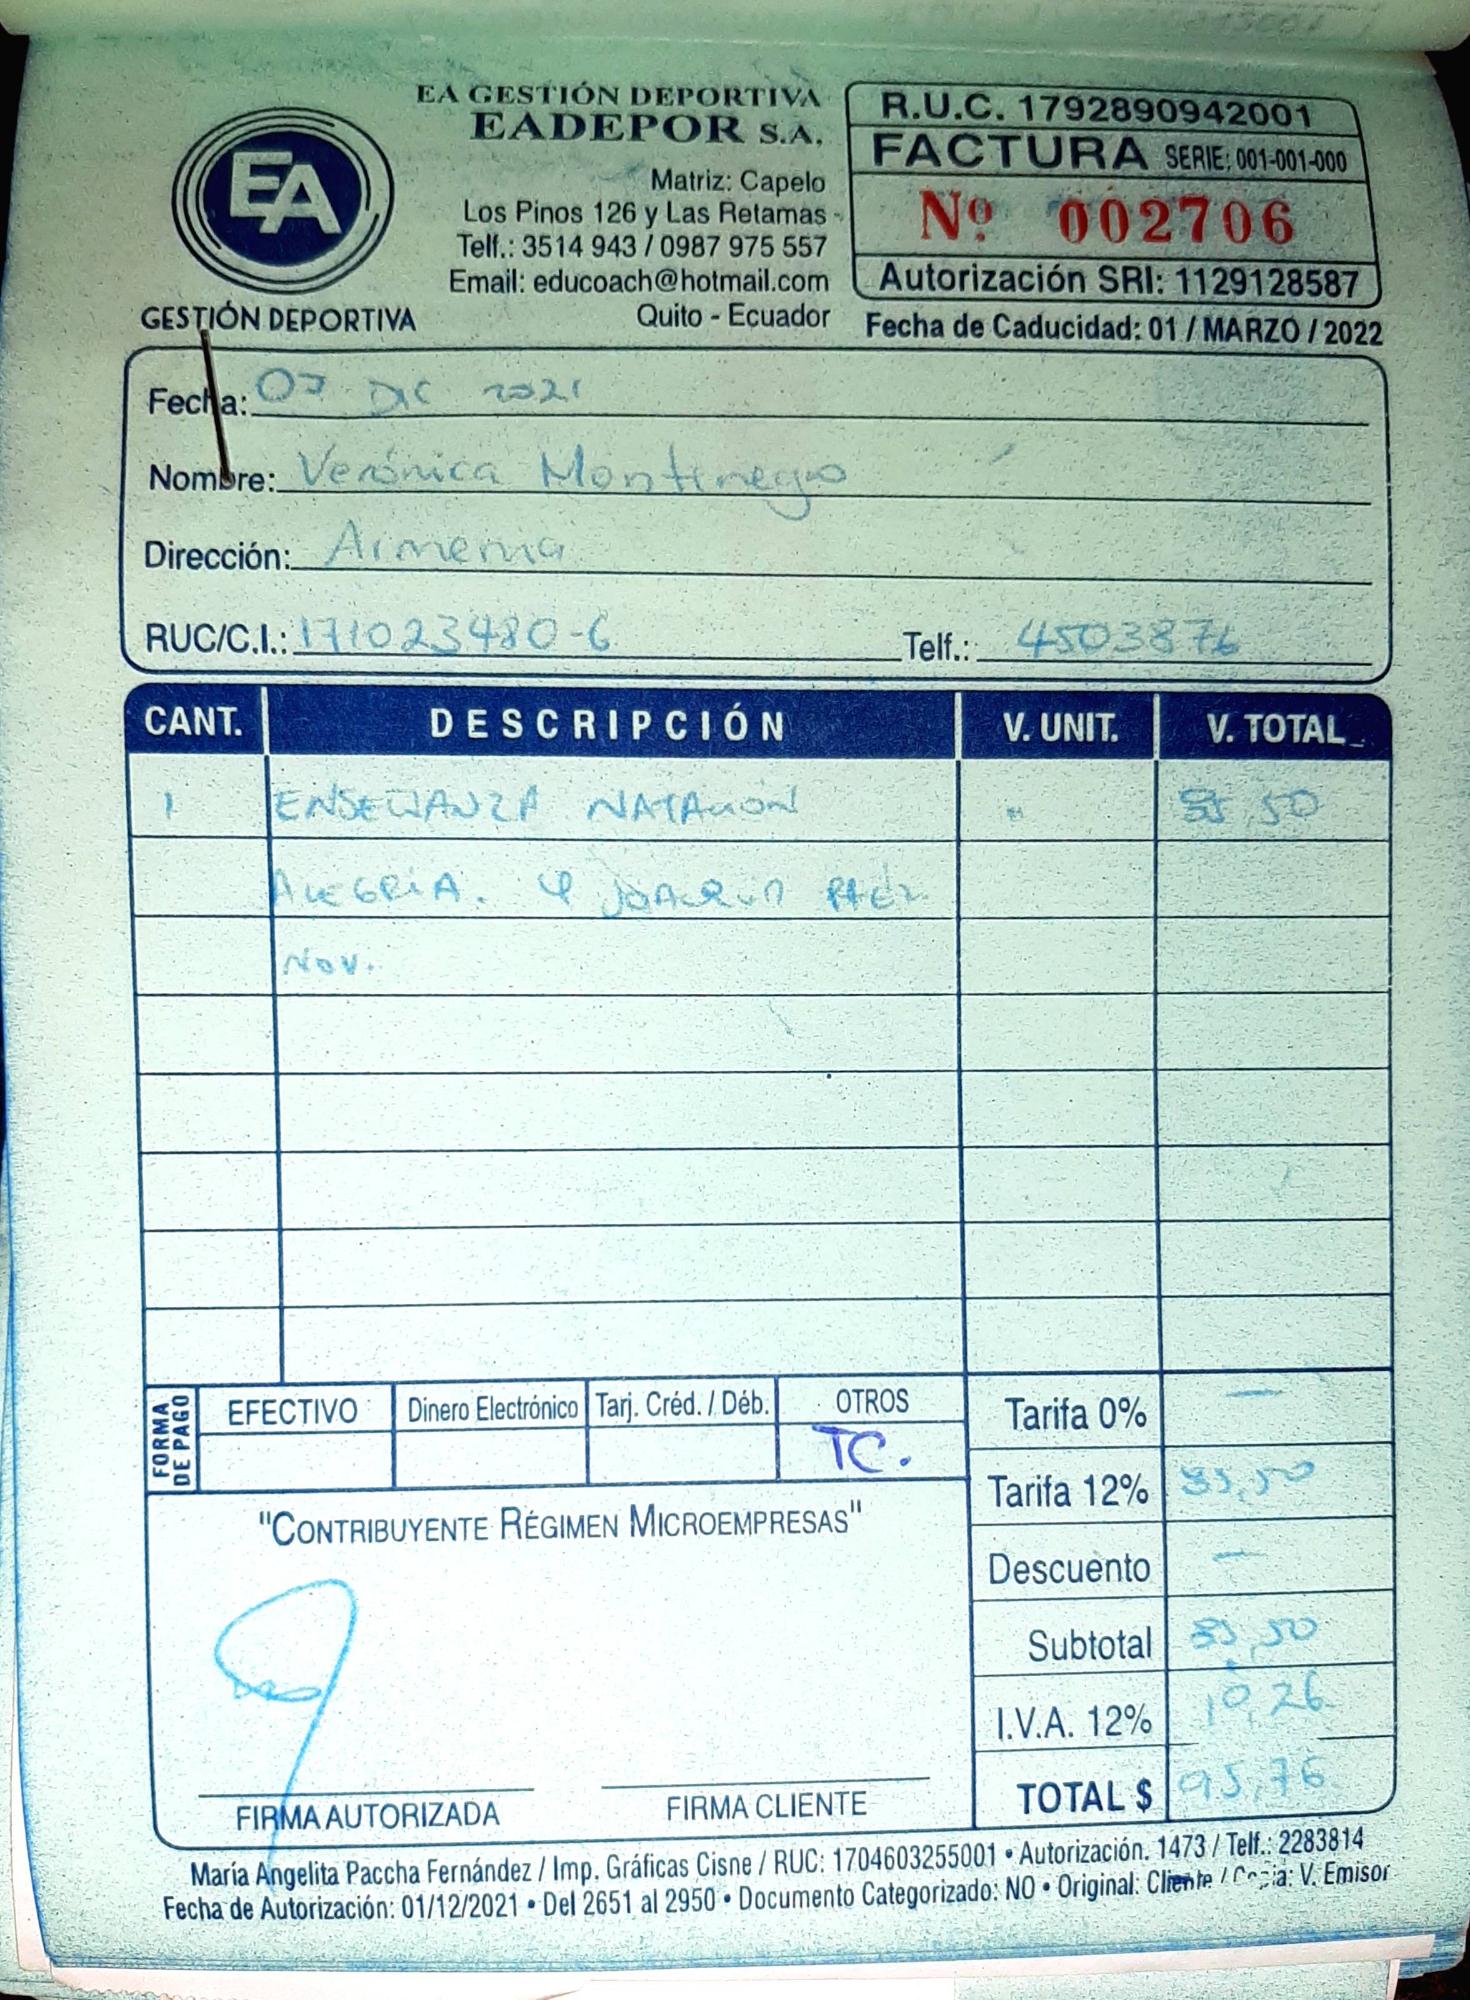 EA GESTIÓN DEPORTIVA
EADEPOR S.A.
Matriz: Capelo
Los Pinos 126 y Las Retamas -
Telf.: 3514 943 / 0987 975 557
Email: educoach@hotmail.com
Quito - Ecuador
EA
GESTIÓN DEPORTIVA
R.U.C. 1792890942001
FACTURA SERIE: 001-001-000
Nº 002706
Autorización SRI: 1129128587
Fecha de Caducidad: 01 / MARZO / 2022
Fecha: 07 DIC 2021
Nombre: Verónica Montenegro
Dirección: Armenia
RUC/C.I.: 171023480-6 Telf.: 4503876
CANT. DESCRIPCIÓN V. UNIT. V. TOTAL
1 ENSEÑANZA NATACIÓN " 85,50
ALEGRÍA. Y JOAQUÍN PAEZ
NOV.
FORMA DE PAGO EFECTIVO Dinero Electrónico Tarj. Créd. / Déb. OTROS
TC.
Tarifa 0% —
Tarifa 12% 85,50
Descuento —
Subtotal 85,50
I.V.A. 12% 10,26
TOTAL $ 95,76
"CONTRIBUYENTE RÉGIMEN MICROEMPRESAS"
FIRMA AUTORIZADA FIRMA CLIENTE
María Angelita Paccha Fernández / Imp. Gráficas Cisne / RUC: 1704603255001 • Autorización. 1473 / Telf.: 2283814
Fecha de Autorización: 01/12/2021 • Del 2651 al 2950 • Documento Categorizado: NO • Original: Cliente / Copia: V. Emisor